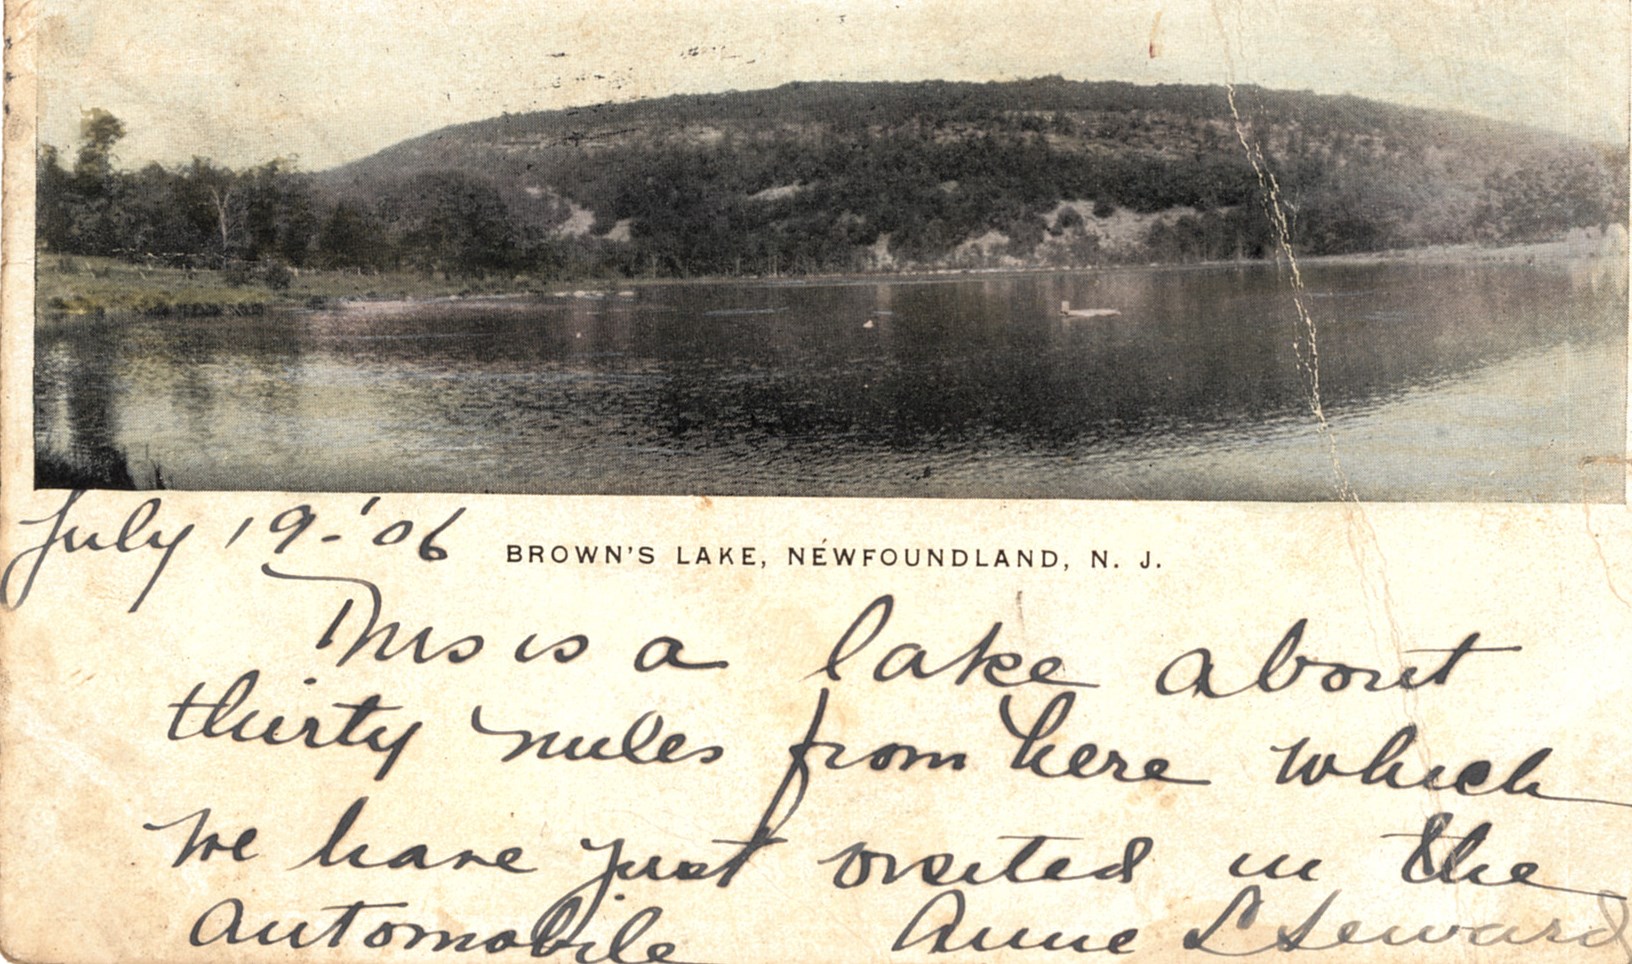 July 19-'06
BROWN'S LAKE, NEWFOUNDLAND, N. J.
This is a lake about
thirty miles from here which
we have just visited in the
automobile Anne L Seward